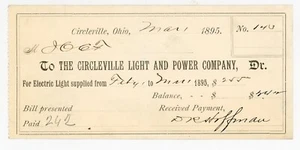 Circleville, Ohio, Mar 1 1895. No. 143
M I O O F
To THE CIRCLEVILLE LIGHT AND POWER COMPANY, Dr.
For Electric Light supplied from Feb 1 to Mar 1 1895, $
Balance, - - $
Bill presented Received Payment,
Paid 242 Hoffman